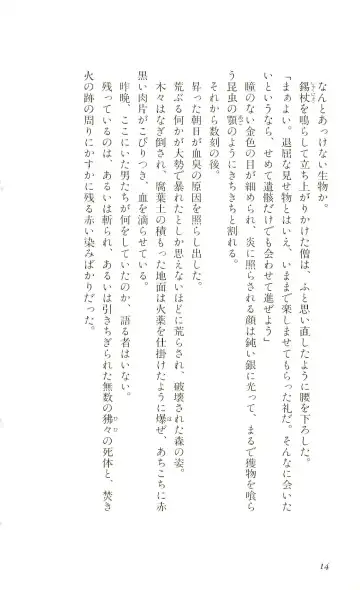 なんとあっけない生物か。
錫杖を鳴らして立ち上がりかけた僧は、ふと思い直したように腰を下ろした。
「まぁよい。退屈な見せ物とはいえ、いままで楽しませてもらった礼だ。そんなに会いた
いというなら、せめて遺骸だけでも会わせて進ぜよう」
瞳のない金色の目が細められ、炎に照らされる顔は鈍い銀に光って、まるで獲物を喰ら
う昆虫の顎のようにきちきちと割れる。
それから数刻の後。
昇った朝日が血臭の原因を照らし出した。
荒ぶる何かが大勢で暴れたとしか思えないほどに荒らされ、破壊された森の姿。
木々はなぎ倒され、腐葉土の積もった地面は火薬を仕掛けたように爆ぜ、あちこちに赤
黒い肉片がこびりつき、血を滴らせている。
昨晩、ここにいた男たちが何をしていたのか、語る者はいない。
残っているのは、あるいは斬られ、あるいは引きちぎられた無数の狒々の死体と、焚き
火の跡の周りにかすかに残る赤い染みばかりだった。
14